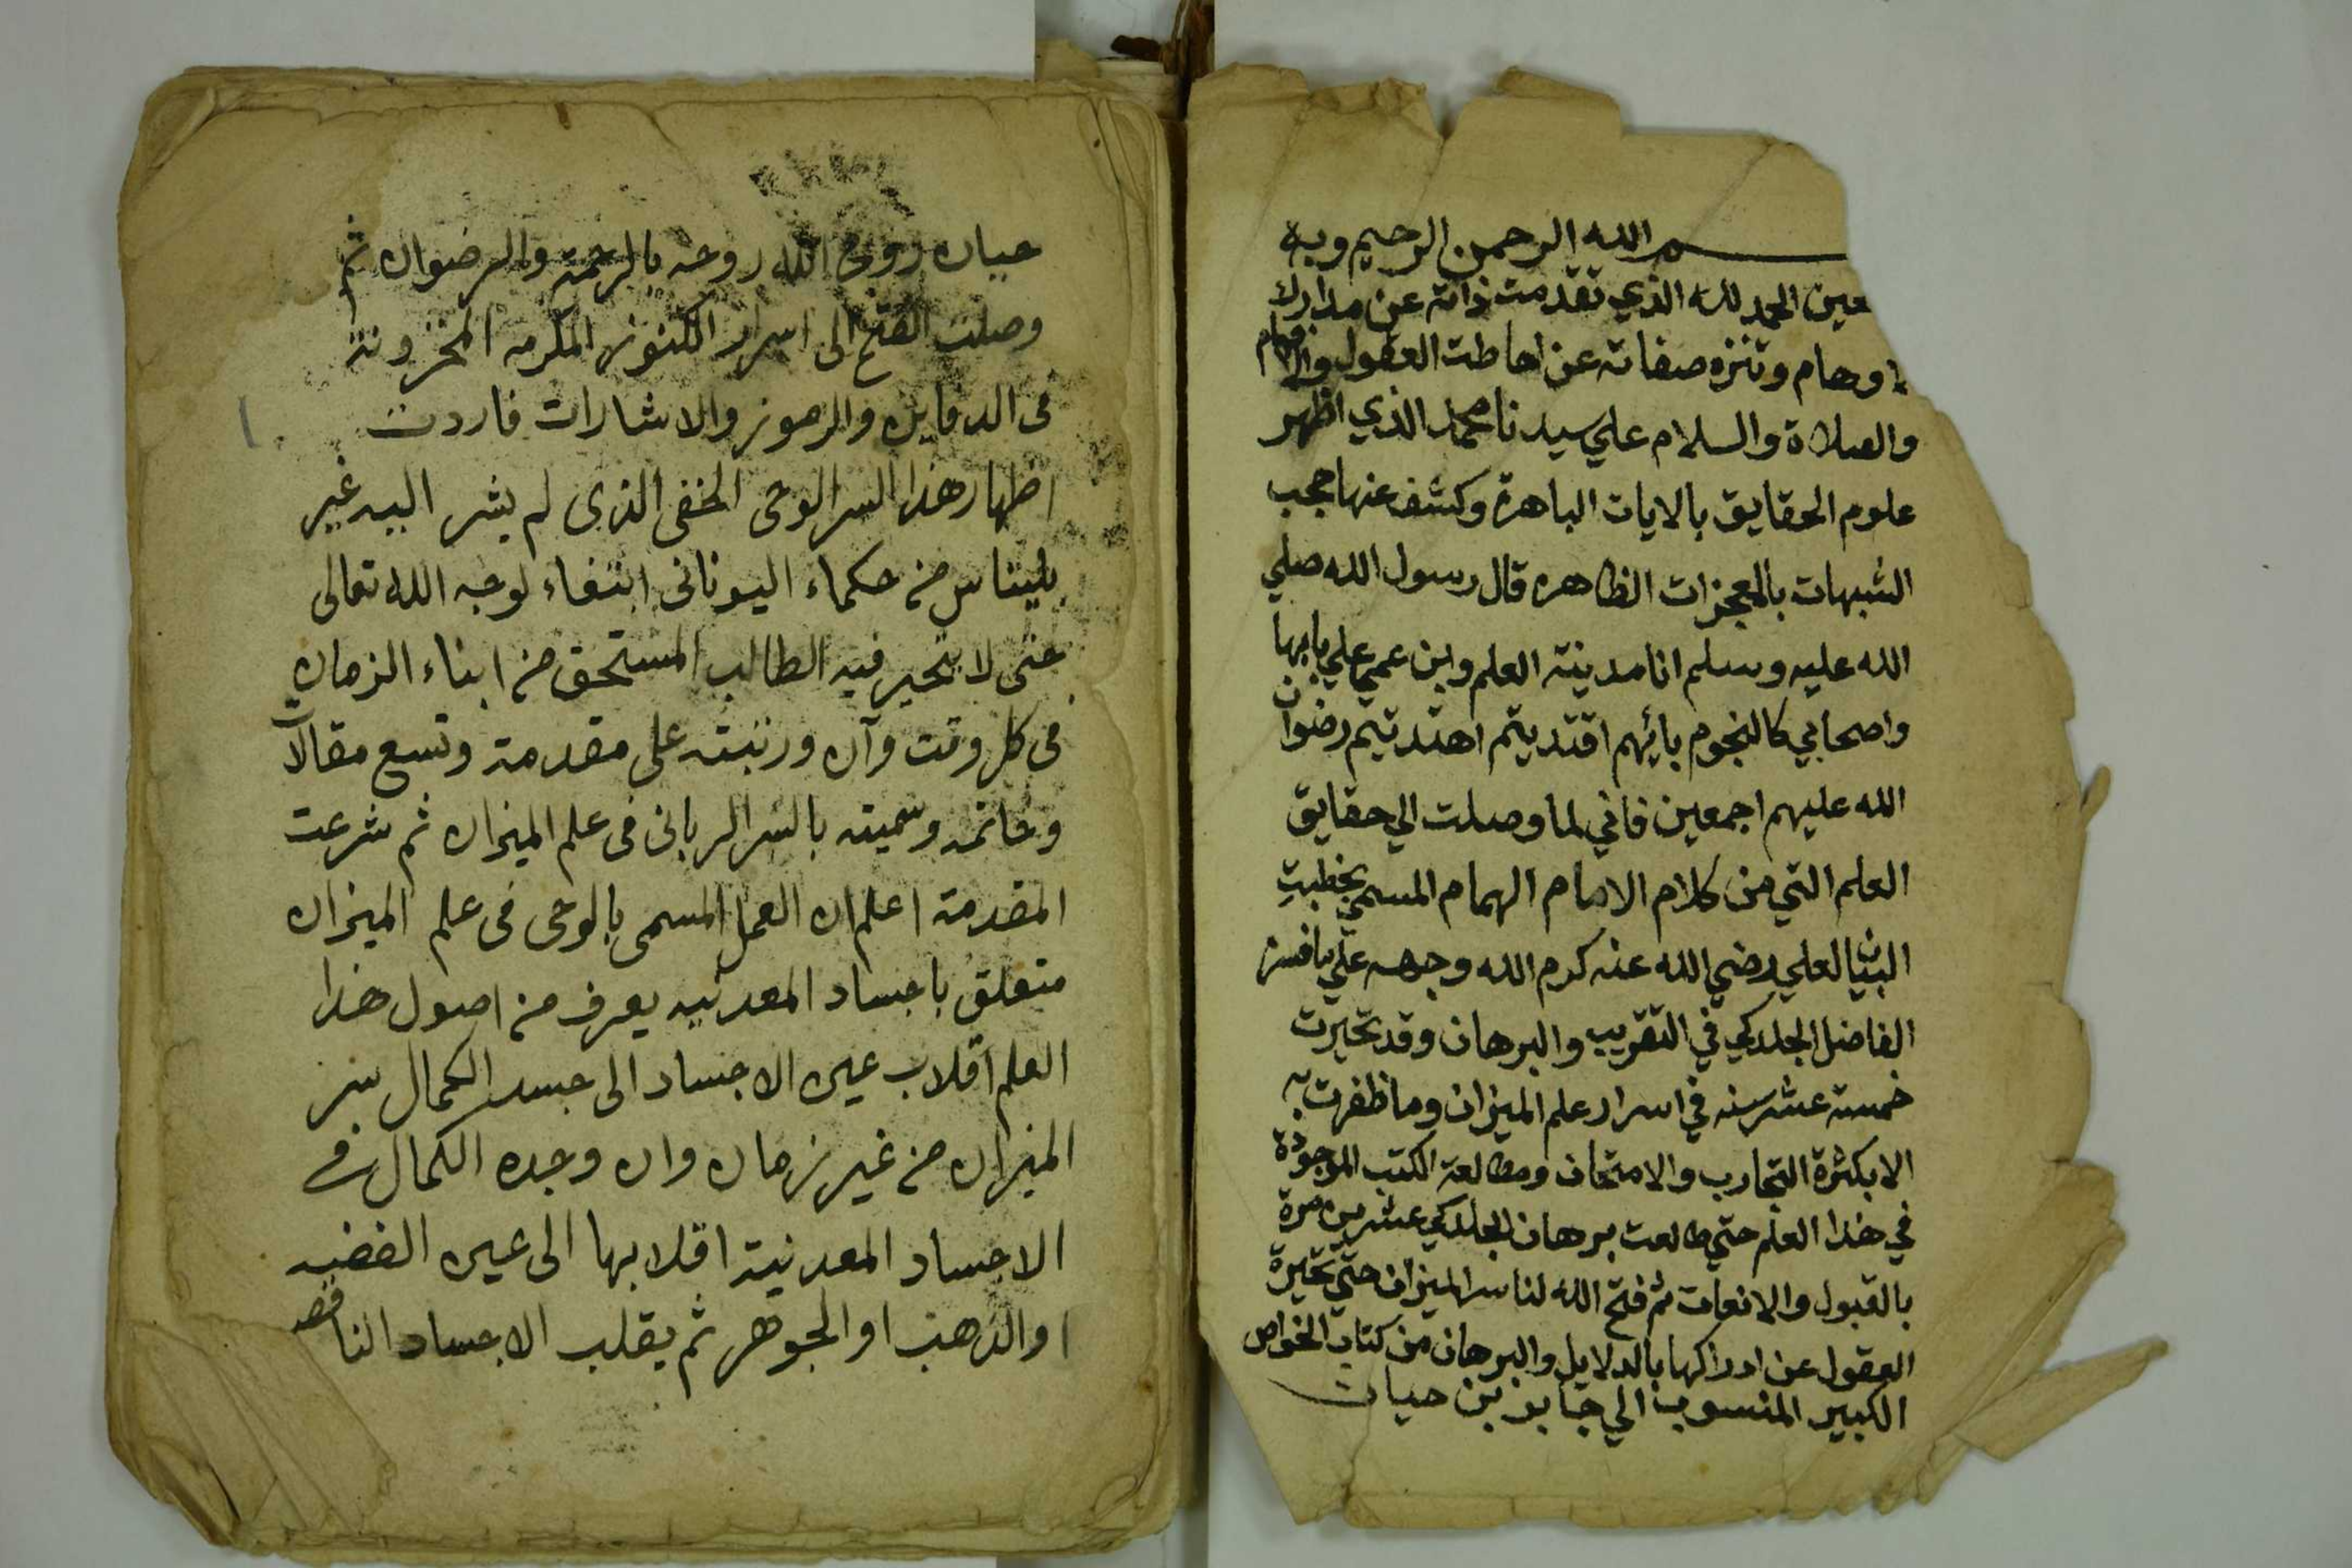 بسم الله الرحمن الرحيم وبه
نستعين الحمد لله الذي تقدمت ذاته عن مدارك
الاوهام وتنزه صفاته عن احاطت العقول والافهام
والصلاة والسلام علي سيدنا محمد الذي اظهر
علوم الحقايق بالايات الباهرة وكشف عنها حجب
الشبهات بالمعجزات الظاهره قال رسول الله صلي
الله عليه وسلم انا مدينة العلم وابن عمي علي بابها
واصحابي كالنجوم بائيهم اقتديتم اهتديتم رضوان
الله عليهم اجمعين فاني لما وصلت الي حقايق
العلم التي من كلام الامام الهمام المسمي بخطبت
البيان لعلي رضي الله عنه كرم الله وجهه علي ما فسر
الفاضل الجلدكي في التقريب والبرهان وقد تحيرت
خمسة عشر سنه في اسرار علم الميزان وما ظفرت به
الا بكثرة التجارب والامتحان ومطالعة الكتب الموجودة
في هذا العلم حتي طالعت برهان الجلدكي عشرين مرة
بالقبول والانعات ثم فتح الله لنا سر الميزان حتي تحيرة
العقول عن ادراكها بالدلايل والبرهان من كتاب الخواص
الكبير المنسوب الي جابر بن حيان
حيان روح الله روحه بالرحمة والرضوان ثم
وصلت الفتح الى اسرار الكنوز المكرمه المخزونة
فى الدفاين والرموز والاشارات فاردت
اظهار هذا السر الوحى الخفى الذى لم يشر اليه غير
بليناس من حكماء اليونانى ابتغاء لوجه الله تعالى
حتى لا يتحير فيه الطالب المستحق من ابناء الزمان
فى كل وقت وآن ورتبته على مقدمة وتسع مقالات
وخاتمه وسميته بالسر الربانى فى علم الميزان ثم شرعت
المقدمة اعلم ان العمل المسمى بالوحى فى علم الميزان
متعلق باجساد المعدنيه يعرف من اصول هذا
العلم اقلاب عين الاجساد الى جسد الكمال بسر
الميزان من غير زمان وان وجده الكمال فى
الاجساد المعدنية اقلابها الى عين الفضيه
او الذهب او الجوهر ثم يقلب الاجساد الناقصه